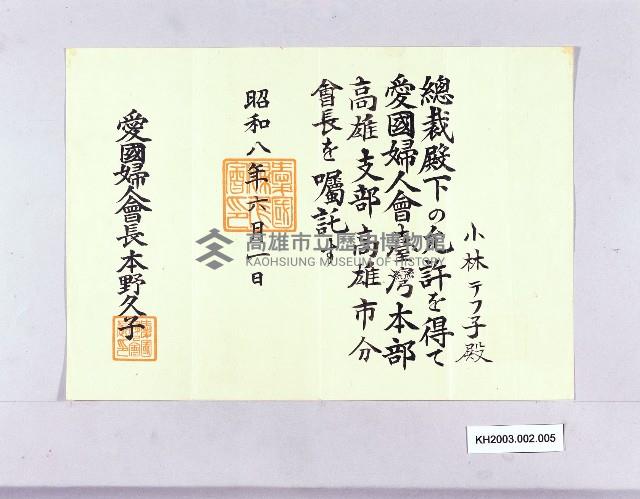 小林テフ子殿
總裁殿下の允許を得て
愛國婦人會臺灣本部
高雄支部高雄市分
會長を囑託す
昭和八年六月一日
愛國婦人會長本野久子
高雄市立歷史博物館
KAOHSIUNG MUSEUM OF HISTORY
KH2003.002.005